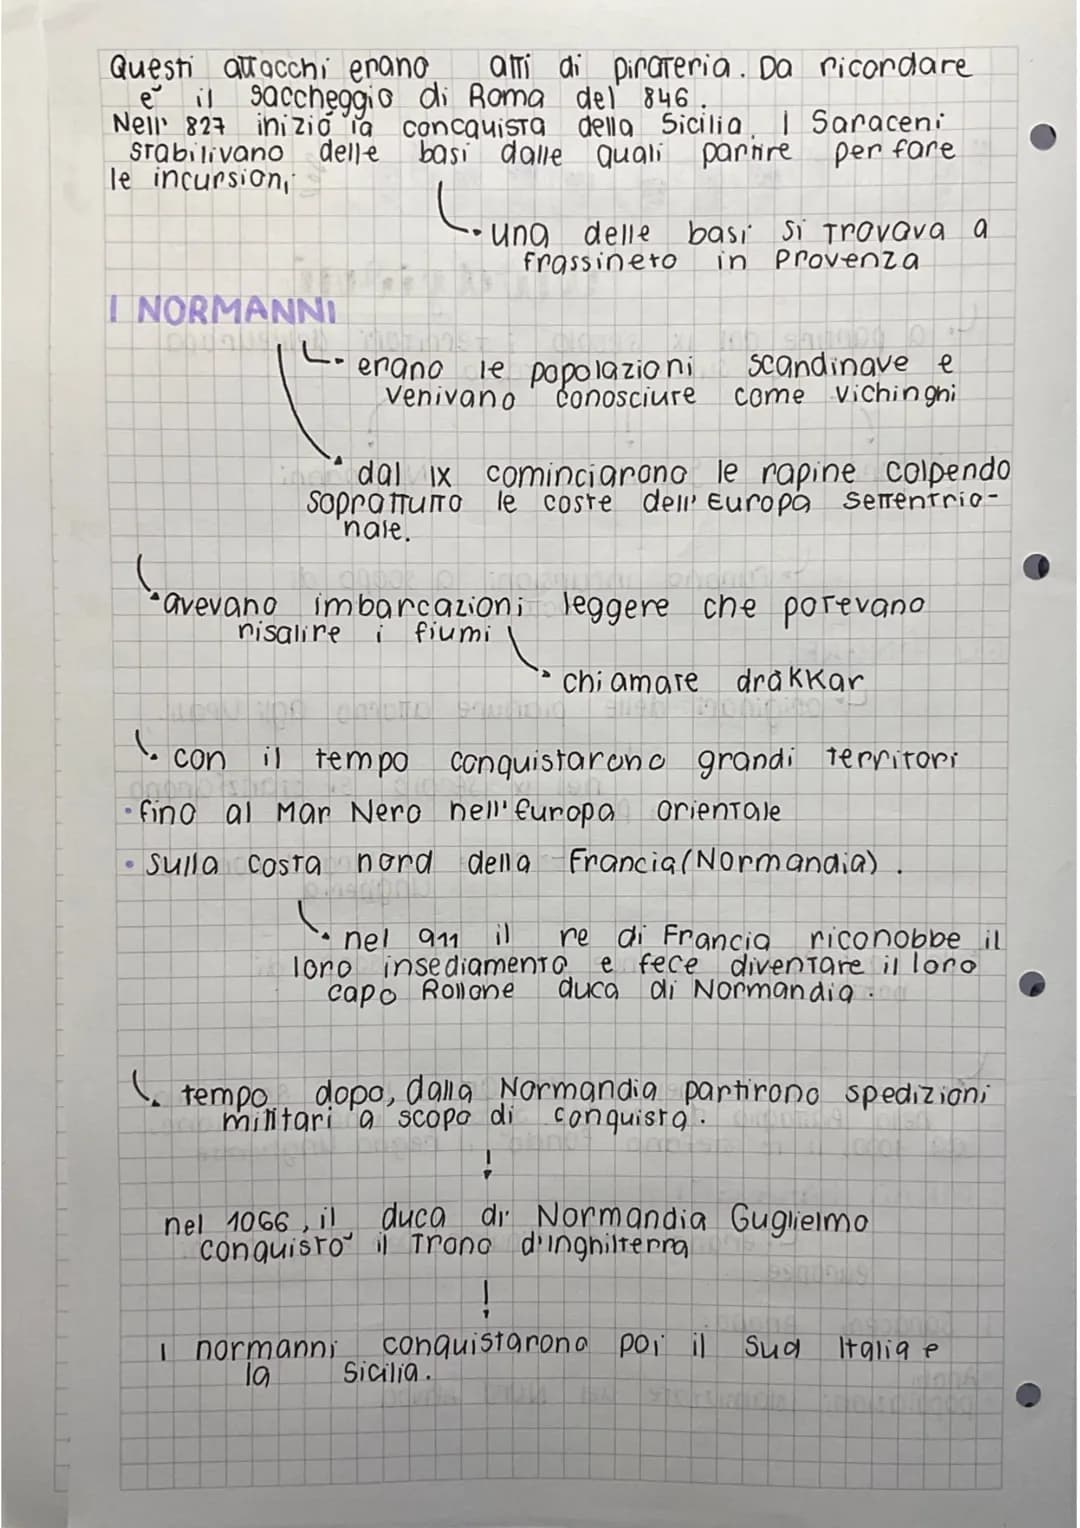 Questi attacchi erano atti di pirateria. Da ricordare
e' il saccheggio di Roma del 846.
Nell' 827 iniziò la concquista della Sicilia. I Saraceni
stabilivano delle basi dalle quali partire per fare
le incursioni
• una delle basi si trovava a
frassineto in Provenza
I NORMANNI
• erano le popolazioni scandinave e
venivano conosciute come vichinghi
• dal IX cominciarono le rapine colpendo
soprattutto le coste dell' Europa settentrio-
nale.
• avevano imbarcazioni leggere che potevano
risalire i fiumi
• chiamate drakkar
• con il tempo conquistarono grandi territori
• fino al Mar Nero nell' Europa orientale
• sulla costa nord della Francia (Normandia).
• nel 911 il re di Francia riconobbe il
loro insediamento e fece diventare il loro
capo Rollone duca di Normandia.
• tempo dopo, dalla Normandia partirono spedizioni
militari a scopo di conquista.
nel 1066, il duca di Normandia Guglielmo
conquistò il trono d'Inghilterra
I normanni conquistarono poi il Sud Italia e
la Sicilia.